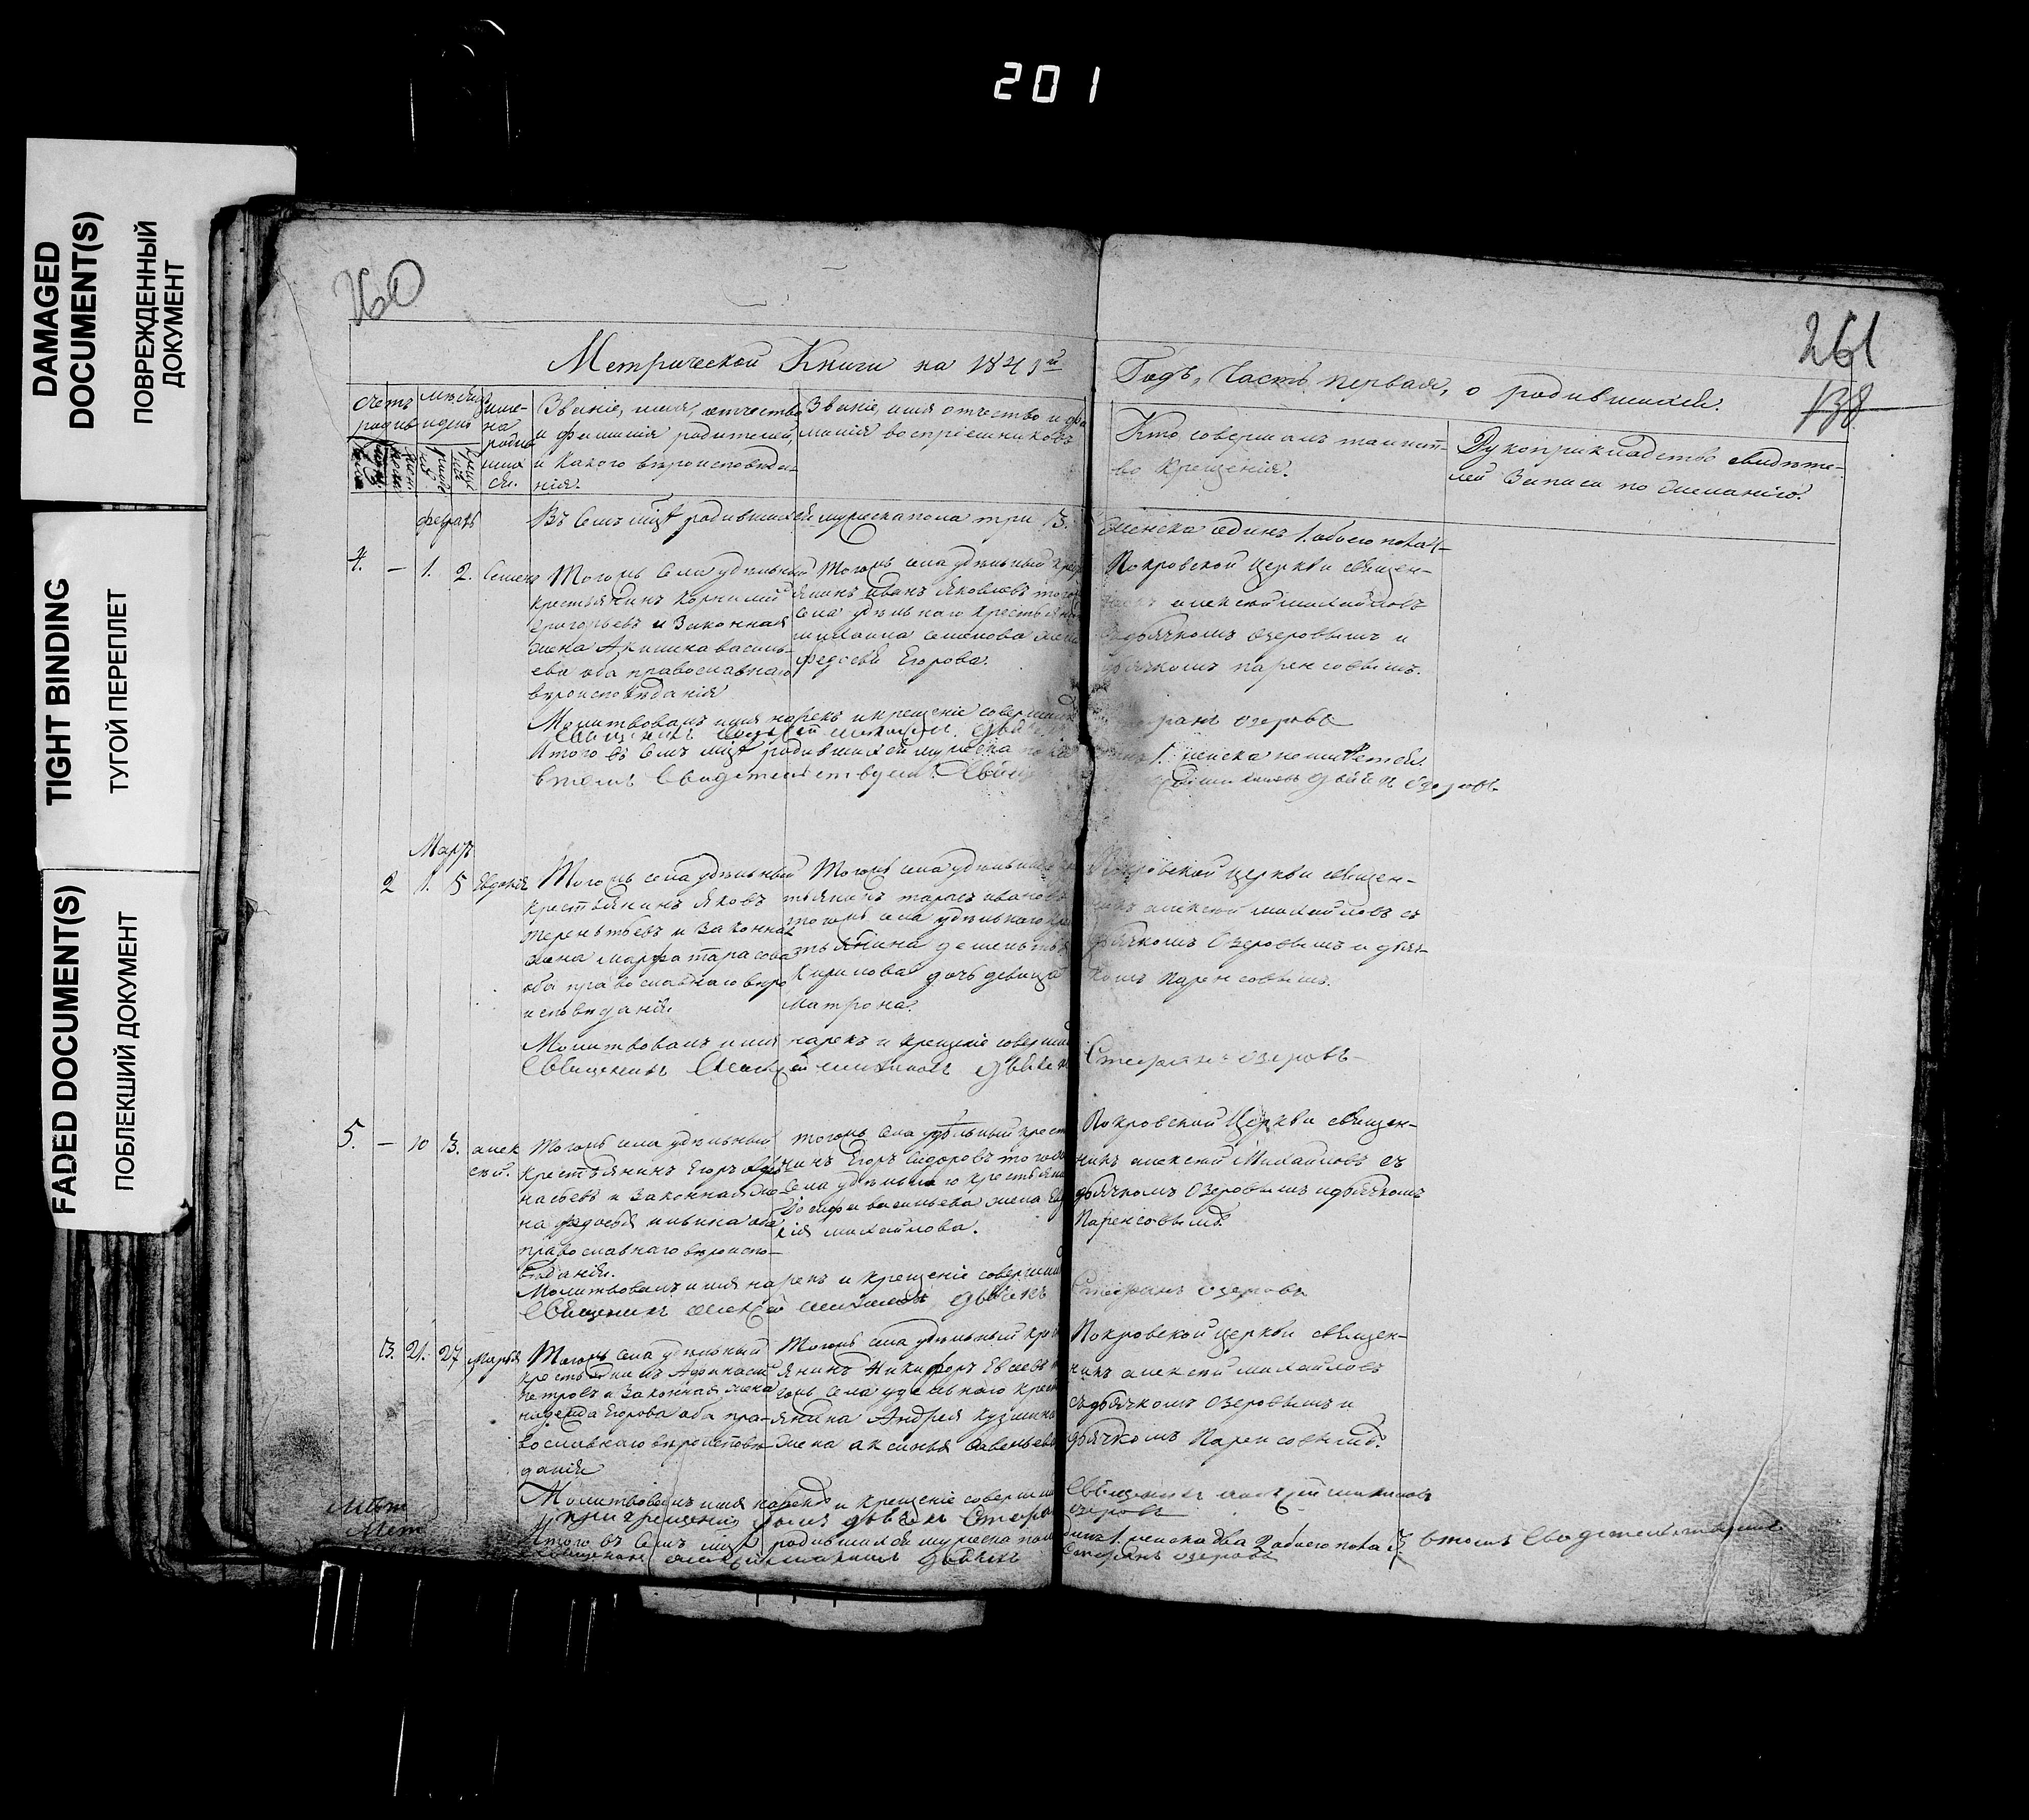 201
DAMAGED
DOCUMENT(S)
ПОВРЕЖДЕННЫЙ
ДОКУМЕНТ
TIGHT BINDING
ТУГОЙ ПЕРЕПЛЕТ
FADED DOCUMENT(S)
ПОБЛЕКШИЙ ДОКУМЕНТ
260
261
138
Метрической Книги на 1841й
Годъ, Часть первая, о родившихся.
Счетъ родив
мѣсяцъ и день
Име-
на
родив
ших
ся.
Званіе, имя, отчество
и фамилія родителей,
и какого вѣроисповѣда-
нія.
Званіе, имя отчество и фа
милія воспріемниковъ
Кто совершалъ таинст-
во крещенія.
Рукоприкладство свидѣте-
лей записи по желанію.
февраль
Въ семъ мцѣ родившихся мужеска пола три 3.
женска одинъ 1. обоего пола 4
4. — 1. 2. Семенъ
Тогожъ села удѣльный
крестьянинъ Корнилий
Григорьевъ и законная
жена Акилина василь-
ева оба православнаго
вѣроисповѣданія
Тогожъ села удѣльный крес
янинъ Иванъ Яковлевъ того
села удѣльнаго крестьяни
михаила семенова жена
федосья Егорова.
Покровской Церкви священ-
алексий михайловъ
дьячкомъ Озеровымъ и
дьячкомъ паренсовымъ.
Молитвовалъ имя нарекъ и крещеніе совершилъ
Озеровъ
Итого въ семъ мцѣ родившихся мужеска пола
1. женска нѣтъ
Озеровъ
Мартъ
2 1. 5 Евдокія
Тогожъ села удѣльный
крестьянинъ Яковъ
терентьевъ и законная
жена марфа тарасова
оба православнаго вѣро
исповѣданія.
Тогожъ села удѣльный
тьянинъ тарасъ ивановъ
тогожъ села удѣльнаго кре
тьянина
Кирилова дочь девица
матрона.
Покровской церкви священ-
никъ алексий михайловъ съ
дьячкомъ Озеровымъ и дьяч-
комъ Паренсовымъ.
Молитвовалъ имя нарекъ и крещеніе совершилъ
Священникъ Алексѣй михайловъ дьячекъ
Стефанъ озеровъ
5. — 10 13. алек
сий.
Тогожъ села удѣльный
крестьянинъ Егоръ Афа
насьевъ и законная же
на федосья ильина оба
православнаго вѣроиспо-
вѣданія.
тогожъ села удѣльный крест
нинъ Егоръ Сидоровъ тогожъ
села удѣльнаго крестьяни
васильева жена Ев
кія михайлова.
Покровской Церкви священ-
никъ алексий Михайловъ съ
дьячкомъ Озеровымъ и дьячкомъ
Паренсовымъ.
Молитвовалъ имя нарекъ и крещеніе совершилъ
Священникъ алексѣй михайловъ дьячекъ
Стефанъ Озеровъ
3. 21. 27 Марья
Тогожъ села удѣльный
крестьянинъ Афанасий
петровъ и законная жена
надежда Егорова оба пра-
вославнаго вѣроисповѣ
данія
Тогожъ села удѣльный кре
янинъ Никифоръ Евсевъ
гожъ села удельнаго крес
янина Андрея кузмина
жена аксинья савельева
Покровской церкви священ-
никъ алексий михайловъ
съ дьячкомъ Озеровымъ и
дьячкомъ Паренсовымъ.
Молитвовалъ имя нарекъ и крещеніе совершилъ
Священникъ алексѣй михайловъ
при крещеніи былъ дьячекъ Стефан
озеровъ
Итого въ семъ мцѣ родившихся мужеска пола
динъ 1. женска два 2 обоего пола 3 в томъ свидетельствуемъ
Священникъ алексѣй михайловъ дьячекъ
Стефанъ озеровъ